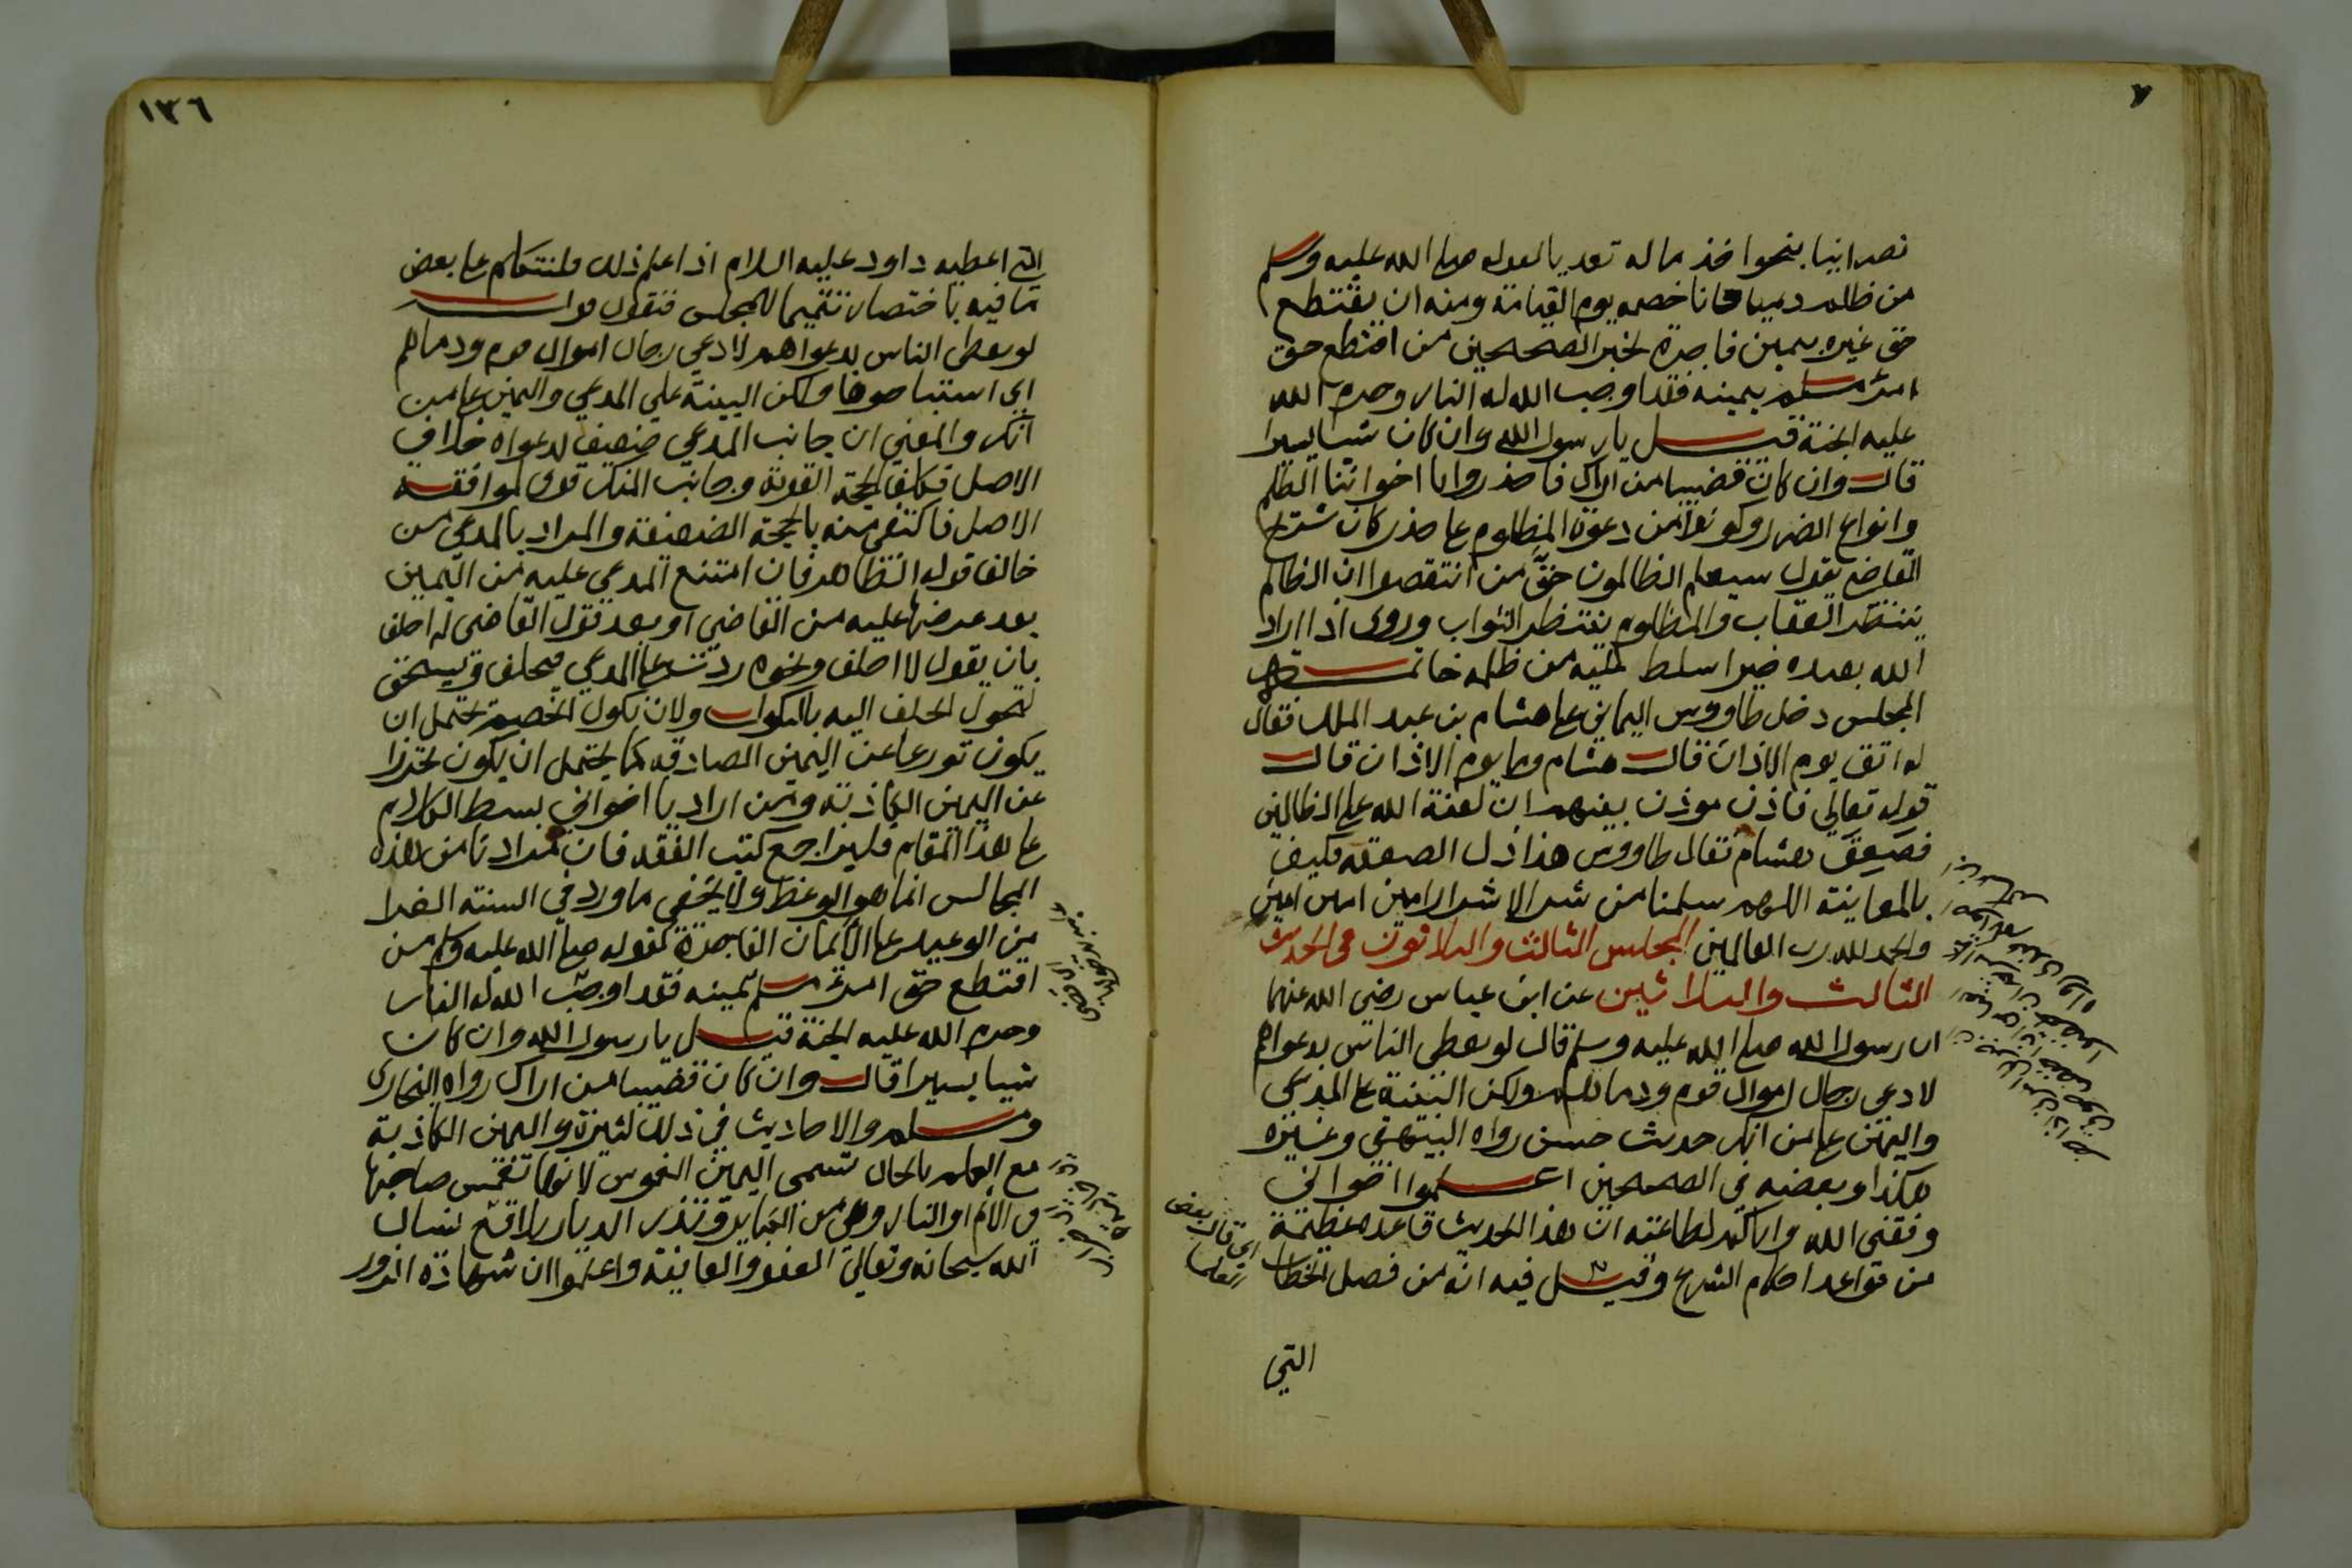 نصرانيا بنحو اخذ ماله تعديا لقوله صلى الله عليه وسلم
من ظلم دميا فانا خصمه يوم القيامة ومنه ان يقتطع
حق غيره بيمين فاجرة لخبر الصحيحين من اقتطع حق
امرئ مسلم بيمينه فقد اوجب الله له النار وحرم الله
عليه الجنة قيل يا رسول الله وان كان شيا يسيرا
قال وان كان قضيبا من اراك فاحذروا يا اخواننا الظلم
وانواع الضرر وكونوا من دعوة المظلوم على حذر كان شريح
القاضي يقول سيعلم الظالمون حق من انتقصوا ان الظالم
ينتظر العقاب والمظلوم ينتظر الثواب وروى اذا اراد
الله بعبده خيرا سلط عليه من ظلمه خاتمة
المجلس دخل طاووس اليماني على هشام بن عبد الملك فقال
له اتق يوم الاذان قال هشام وما يوم الاذان قال
قوله تعالى فاذن موذن بينهم ان لعنة الله على الظالمين
فصعق هشام فقال طاووس هذا ذل الصفة فكيف
بالمعاينة اللهم سلمنا من شر الاشرار امين امين امين
والحمد لله رب العالمين المجلس الثالث والثلاثون في الحديث
الثالث والثلاثين عن ابن عباس رضي الله عنهما
ان رسول الله صلى الله عليه وسلم قال لو يعطى الناس بدعواهم
لادعى رجال اموال قوم ودماءهم ولكن البينة على المدعي
واليمين على من انكر حديث حسن رواه البيهقي وغيره
هكذا وبعضه في الصحيحين اعلموا اخواني
وفقني الله واياكم لطاعته ان هذا الحديث قاعدة عظيمة
من قواعد احكام الشرع وقيل فيه انه من فصل الخطاب
اي قال بعض
التي
١٣٦
التي اعطيه داود عليه السلام اذا علم ذلك فلنتكلم على بعض
ما فيه باختصار تتميما للمجلس فنقول قوله
لو يعطى الناس بدعواهم لادعى رجال اموال قوم ودماءهم
اي استباحوها ولكن البينة على المدعي واليمين على من
انكر والمعنى ان جانب المدعي ضعيف لدعواه خلاف
الاصل فكلف الحجة القوية وجانب المنكر قوى لموافقته
الاصل فاكتفى منه بالحجة الضعيفة والمراد بالمدعي من
خالف قوله الظاهر فان امتنع المدعي عليه من اليمين
بعد عرضها عليه من القاضي او بعد قول القاضي له احلف
بان يقول لا احلف ونحوه ردت على المدعي فيحلف ويستحق
لتحول الحلف اليه بالنكول ولان نكول الخصم يحتمل ان
يكون تورعا عن اليمين الصادقه كما يحتمل ان يكون تحرزا
عن اليمين الكاذبة ومن اراد يا اخواني بسط الكلام
على هذا المقام فليراجع كتب الفقه فان مرادنا من هذه
المجالس انما هو الوعظ ولا يخفى ما ورد في السنة الغرا
من الوعيد على الايمان الفاجرة كقوله صلى الله عليه وسلم من
اقتطع حق امرئ مسلم بيمينه فقد اوجب الله له النار
وحرم الله عليه الجنة قيل يا رسول الله وان كان
شيا يسيرا قال وان كان قضيبا من اراك رواه البخاري
ومسلم والاحاديث في ذلك كثيرة واليمين الكاذبة
مع العلم بالحال تسمى اليمين الغموس لانها تغمس صاحبها
في الاثم او النار وهي من الكبائر وتذر الديار بلاقع نسال
الله سبحانه وتعالى العفو والعافية واعلموا ان شهادة الزور